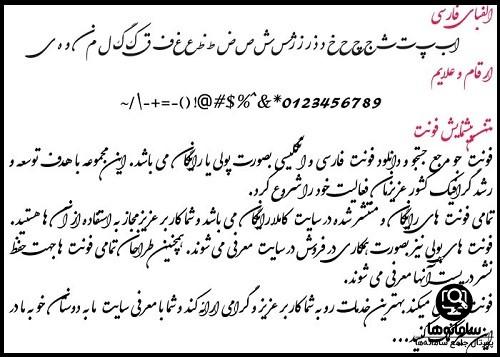 الفبای فارسی
ا ب پ ت ث ج چ ح خ د ذ ر ز ژ س ش ص ض ط ظ ع غ ف ق ک گ ل م ن و ه ی
ارقام و علایم
~/\-+=-()!@#$%^&*0123456789
متن نمایش فونت
فونت جو مرجع جستجو و دانلود فونت فارسی و انگلیسی بصورت پولی یا رایگان می باشد. این مجموعه با هدف توسعه و
رشد گرافیک کشور عزیزمان فعالیت خود را شروع کرد.
تمامی فونت های رایگان و منتشر شده در سایت کاملا رایگان می باشد و شما کاربر عزیز مجاز به استفاده از آن ها هستید.
فونت های پولی نیز بصورت تجاری در فروش در سایت معرفی می شوند. همچنین طراحان تمامی فونت ها جهت حفظ
نشر در پست آنها معرفی می شوند.
فونت میکند بهترین خدمات رو به شما کاربر عزیز و گرامی ارائه کند و شما با معرفی سایت ما به دوستان خود به ما در
سامانه‌ها
بوستان جامع سامانه‌ها